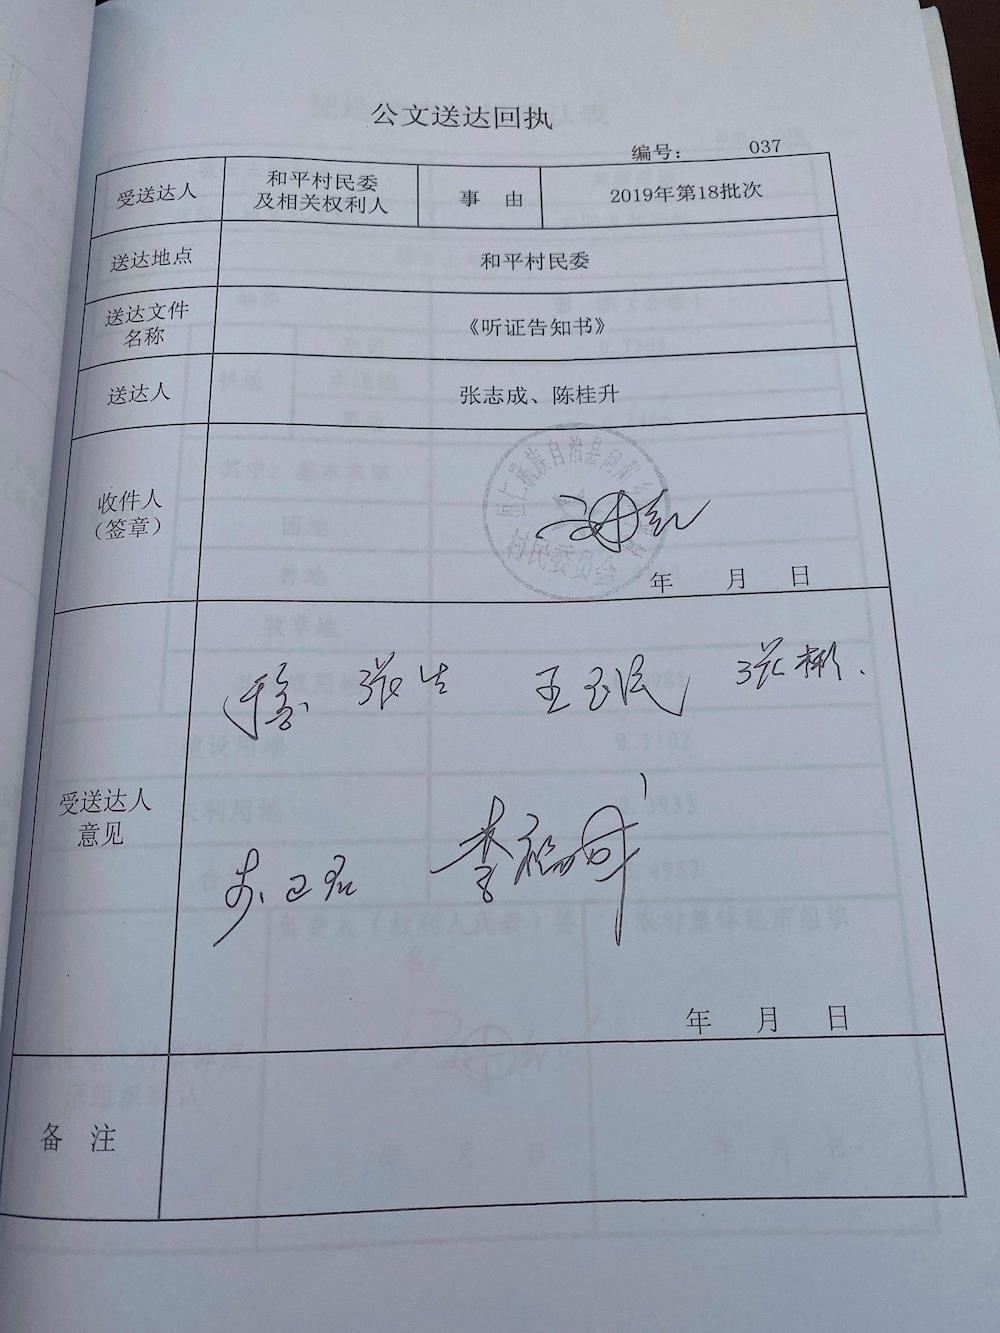 公文送达回执
编号： 037
受送达人
和平村民委
及相关权利人
事 由
2019年第18批次
送达地点
和平村民委
送达文件
名称
《听证告知书》
送达人
张志成、陈桂升
收件人
（签章）
族自治县
村民委员会
年 月 日
受送达人
意见
王玉民
张彬.
年 月 日
备 注